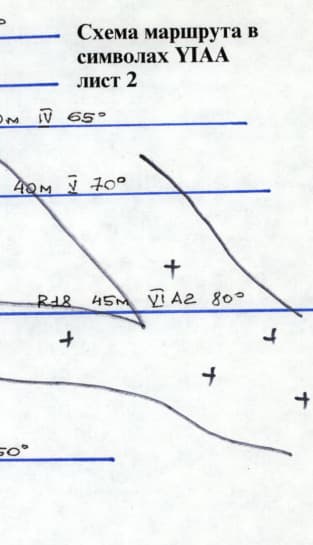 Схема маршрута в
символах YIAA
лист 2
м IV 65°
40м V 70°
R18 45м VI A2 80°
50°